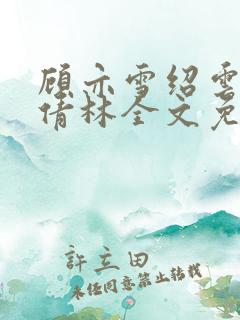 顾亦雪绍云
倩林全文免
許立田
未经同意禁止转载